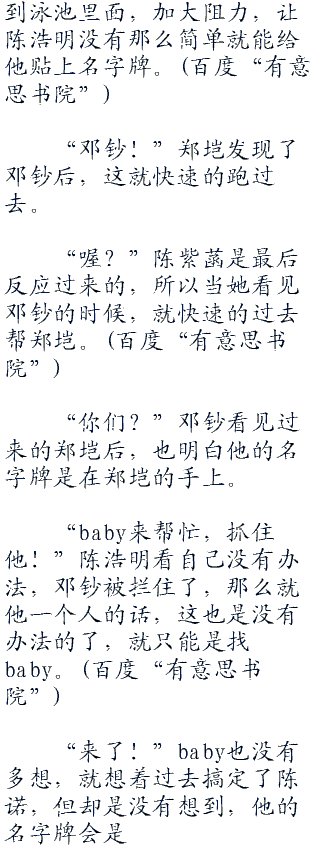 到泳池里面，加大阻力，让
陈浩明没有那么简单就能给
他贴上名字牌。(百度“有意
思书院”)
“邓钞！”郑垲发现了
邓钞后，这就快速的跑过
去。
“喔？”陈紫菡是最后
反应过来的，所以当她看见
邓钞的时候，就快速的过去
帮郑垲。(百度“有意思书
院”)
“你们？”邓钞看见过
来的郑垲后，也明白他的名
字牌是在郑垲的手上。
“baby来帮忙，抓住
他！”陈浩明看自己没有办
法，邓钞被拦住了，那么就
他一个人的话，这也是没有
办法的了，就只能是找
baby。(百度“有意思书
院”)
“来了！”baby也没有
多想，就想着过去搞定了陈
诺，但却是没有想到，他的
名字牌会是